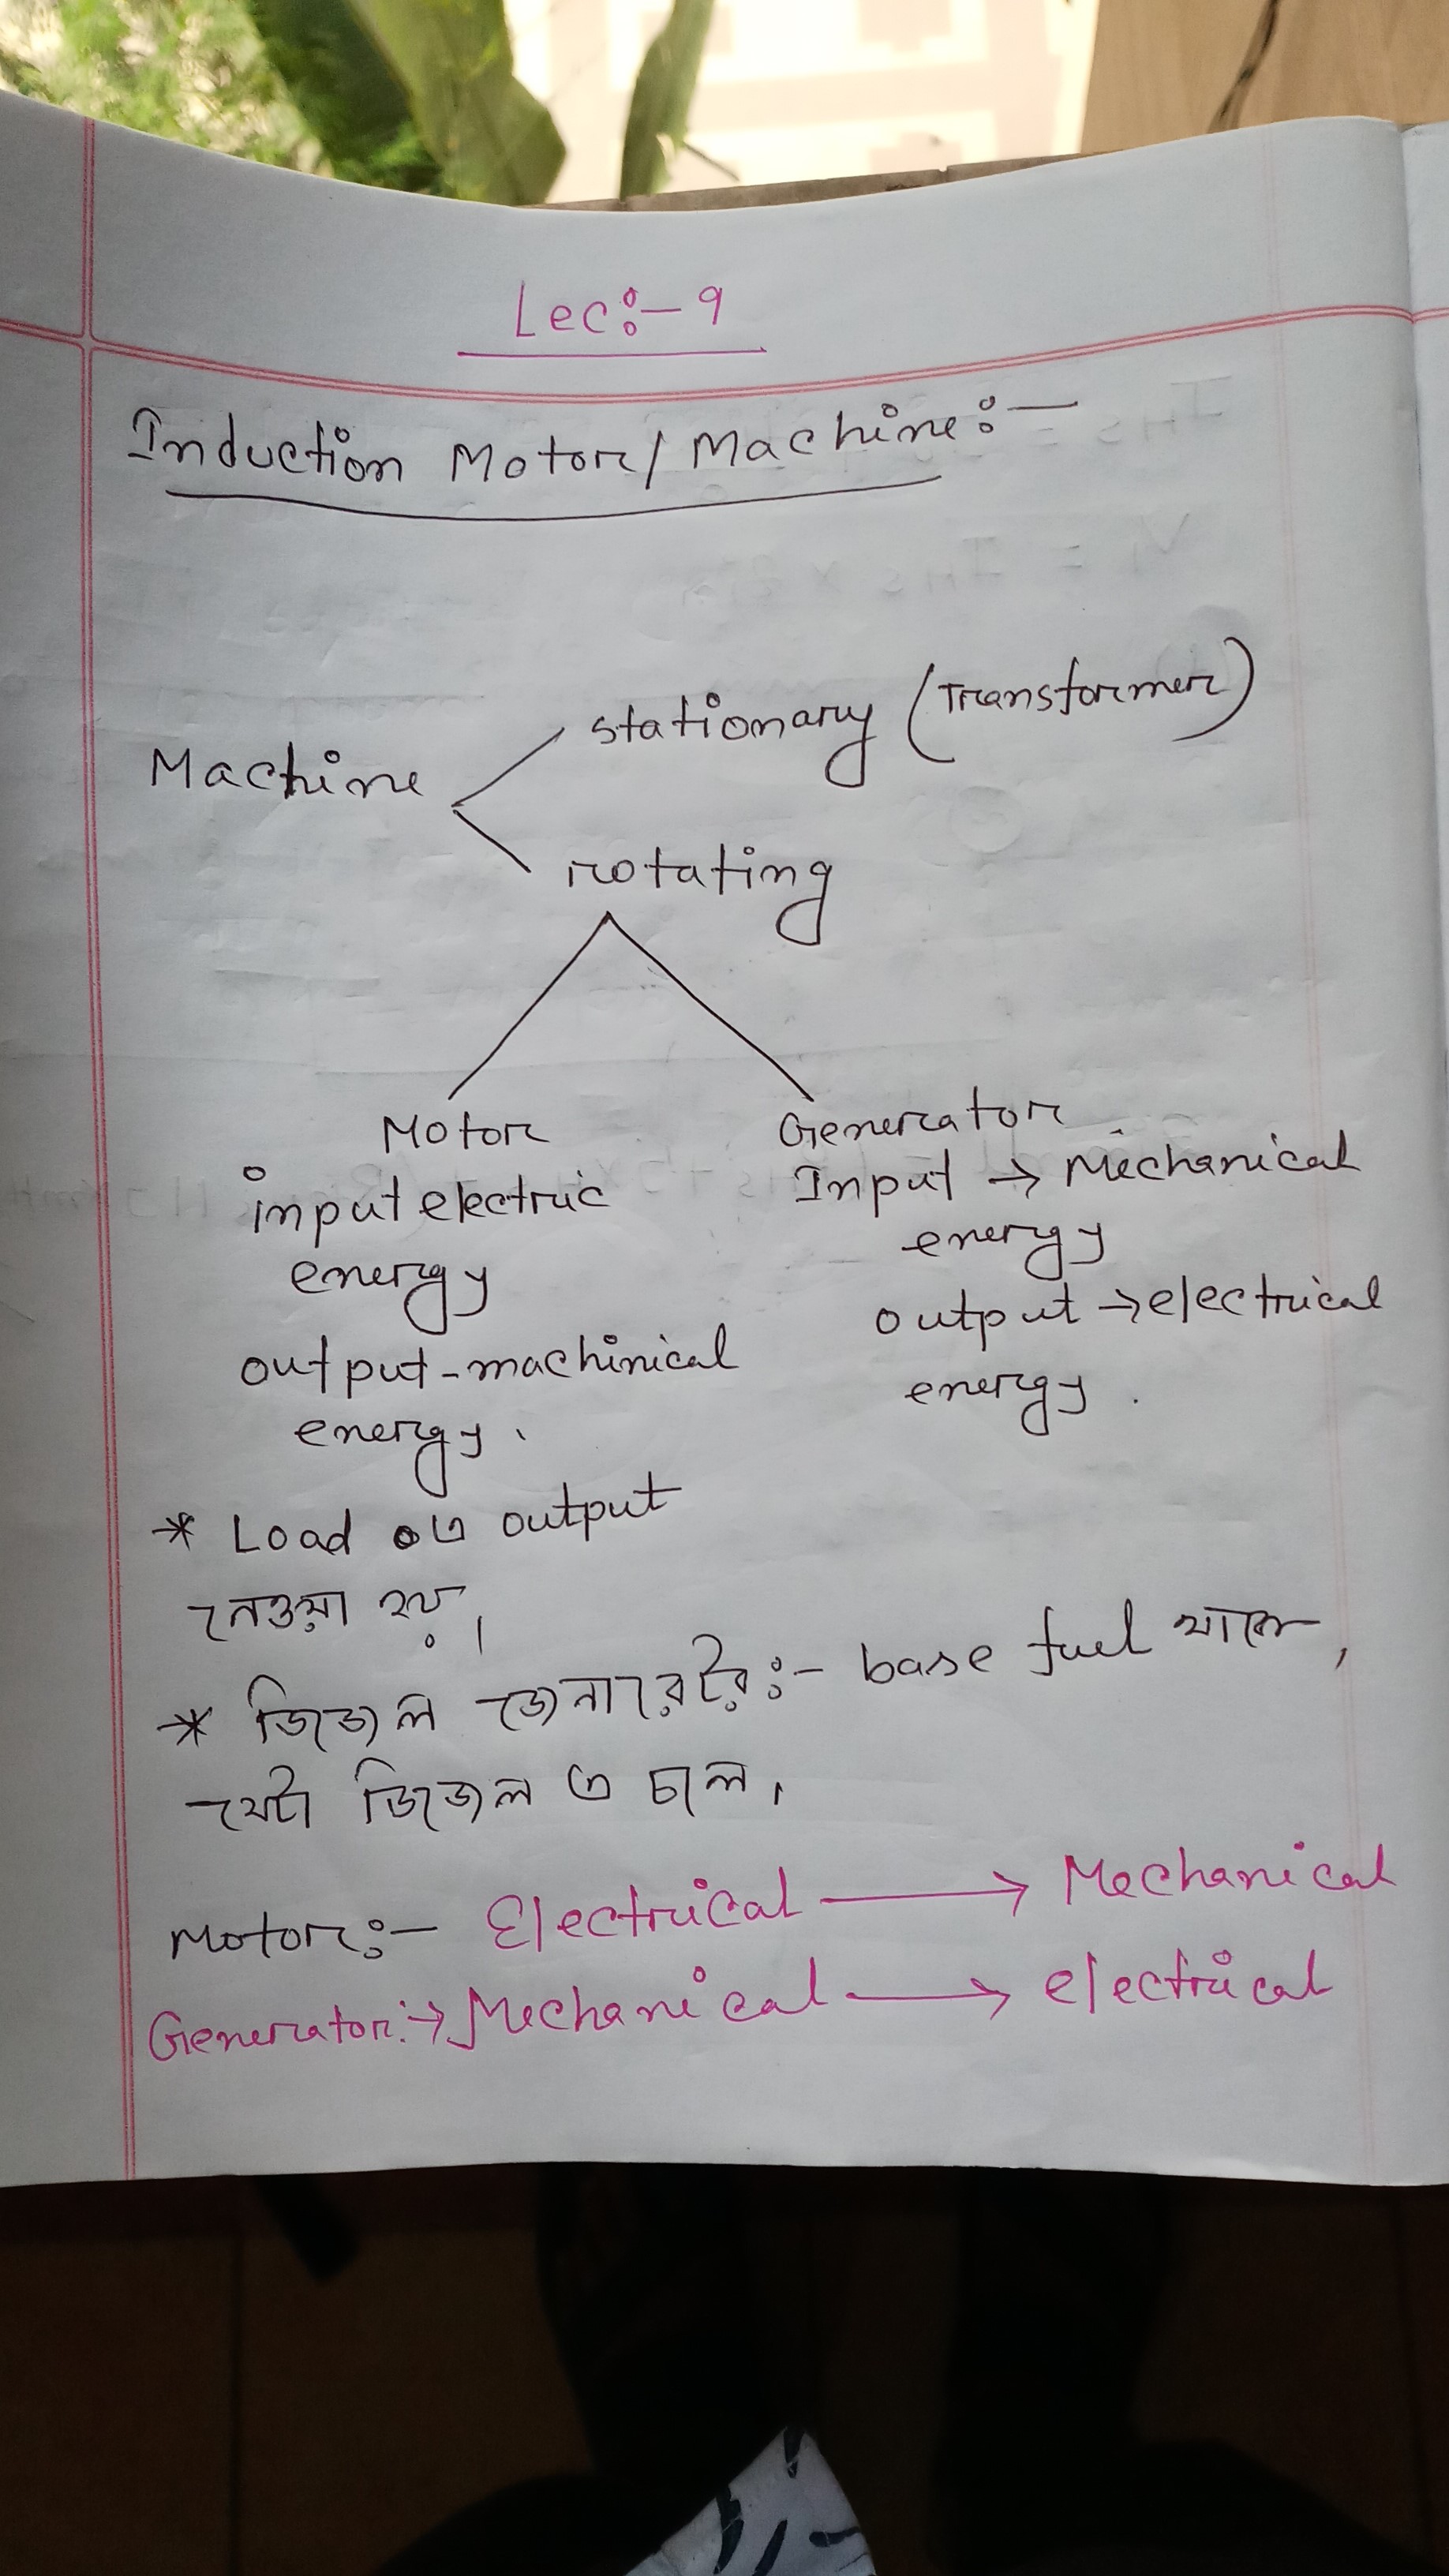 Lec:- 9
Induction Motor/Machine:-
Machine
stationary (Transformer)
rotating
Motor
input electric
energy
output-machinical
energy.
Generator
Input → Mechanical
energy
output → electrical
energy.
* Load এ output
নেওয়া হয়।
* ডিজেল জেনারেটর:- base fuel থাকে,
যেটা ডিজেল এ চলে।
Motor:- Electrical → Mechanical
Generator:→ Mechanical → electrical